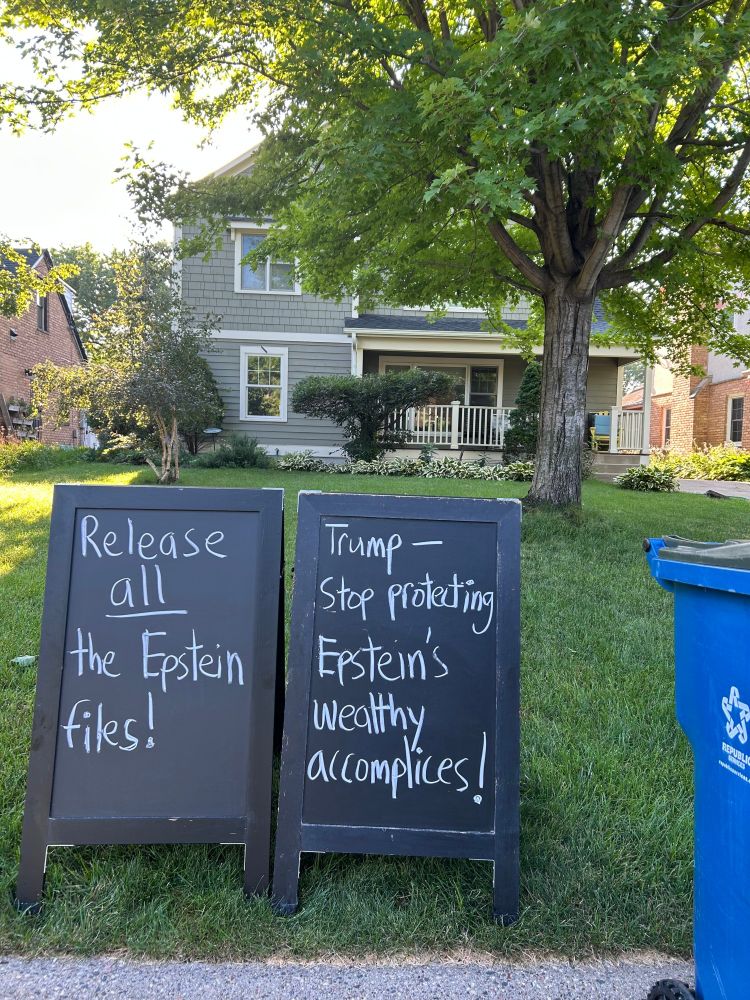 Release
all
the Epstein
files!
Trump —
Stop protecting
Epstein's
wealthy
accomplices!
REPUBLIC
SERVICES